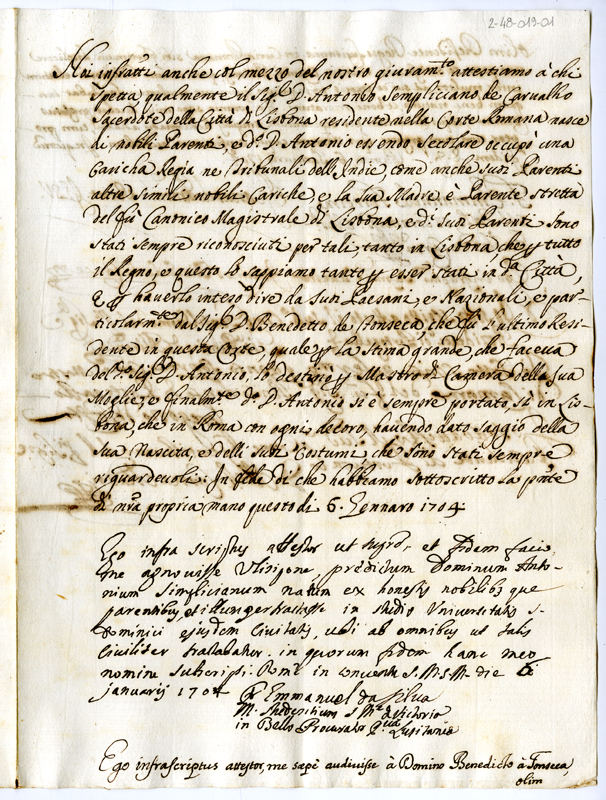 2-48-019-01
Noi infra̅tti anche col mezzo del nostro giuram.to attestiamo à chi
spetta qualmente il Sig.r D. Antonio Sempliciano de Carvalho
Sacerdote della Città di Lisbona residente nella Corte Romana nasce
di nobili Parenti, e d.o D. Antonio essendo secolare occupò una
Caricha Regia ne Tribunali dell'Indie, come anche suoi Parenti
altre simili nobili Cariche, e la sua Madre è Parente stretta
del fù Canonico Magistrale di Lisbona, e d.i suoi Parenti sono
stati sempre riconosciuti per tali, tanto in Lisbona, che p tutto
il Regno, e questo lo sappiamo tanto p esser stati in d.a Città,
e p haverlo inteso dire da suoi Paesani, e Nazionali, e par-
ticolarm.te dal Sig.r D. Benedetto de Fonseca, che fù l'ultimo Resi-
dente in questa Corte, quale p la stima grande, che faceva
del d.o Sig.r D. Antonio, lo destinò p Mastro di Camera della sua
Moglie; e finalm.te d.o D. Antonio si è sempre portato, sì in Lis-
bona, che in Roma con ogni decoro, havendo dato saggio della
sua Nascita, e delli suoi Costumi, che sono stati sempre
riguardevoli: In fede di che habbiamo sottoscritto la pn̅te
di nr̅a propria mano questo dì 6. Gennaro 1704
Ego infra scriptus attestor ut supra, et fidem facio,
me agnovisse Ulisipone, prædictum Dominum Anto-
nium Simplicianum natum ex honestis nobilibus que
parentibus et illum pertractasse in studio Universitatis S.
Dominici ejusdem Civitatis, ubi ab omnibus ut talis
Civiliter tractabatur. in quorum fidem hanc meo
nomine subscripsi. Romæ in conventu S. M. S. M. die 6
januarij 1704
Fr Emmanuel da Silva
M. Studentium S M.æ de Victoria
in Bello Procurator Lusitaniæ
Ego infrascriptus attestor, me sæpè audivisse à Domino Benedicto à Fonseca,
olim